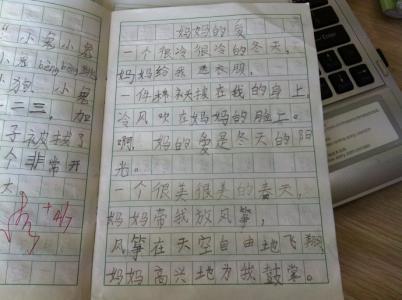 妈妈的爱
一个很冷很冷的冬天,
妈妈给我送衣服,
一件棉衣披在我的身上
冷风吹在妈妈的脸上。
啊,妈的爱是冬天的阳
光。
一个很美很美的春天,
妈妈带我放风筝,
风筝在天空自由地飞翔
妈妈高兴地为我鼓掌。
"小鬼小鬼
二三,加
子被拔了
个非常开